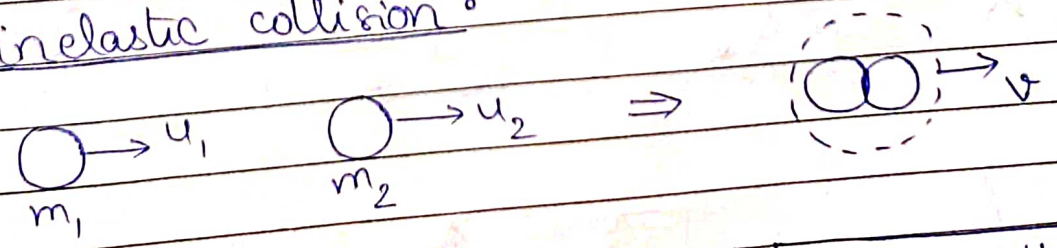 inelastic collision :
u₁ u₂ ⇒ v
m₁ m₂